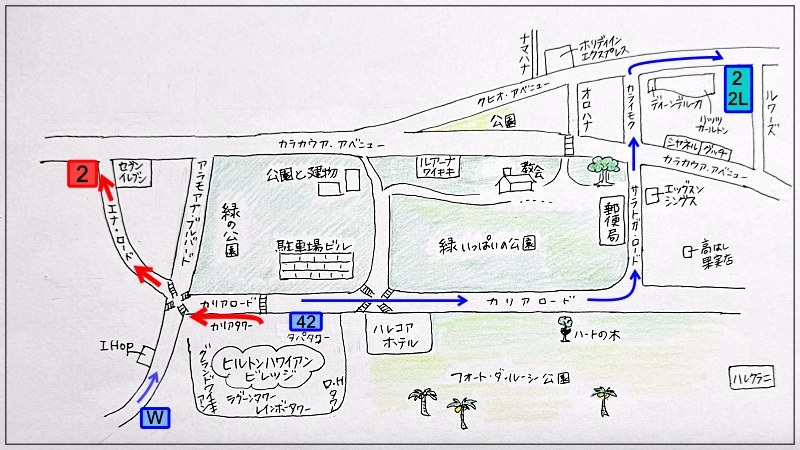 ナマハナ
ホリデイイン
エクスプレス
クヒオ・アベニュー
公園
オロハナ
カライモク
2
2L
ディーン・デルーカ
リッツ
カールトン
ルワーズ
シャネル グッチ
カラカウア. アベニュー
カラカウア. アベニュー
セブン
イレブン
2
エナ・ロード
アラモアナ・ブルバード
公園と建物
緑の公園
駐車場ビル
ルアーナ
ワイキキ
教会
緑いっぱいの公園
郵便局
サラトガ・ロード
エッグスン
シングス
高はし
果実店
カリアロード
カリアタワー
42
タパタワー
カリアロード
IHop
W
グランドワイキキアン
ヒルトンハワイアン
ビレッジ
ラグーンタワー
レインボータワー
ハレコア
ホテル
ハートの木
フォート・ダ・ルーシ公園
ハレクラニ